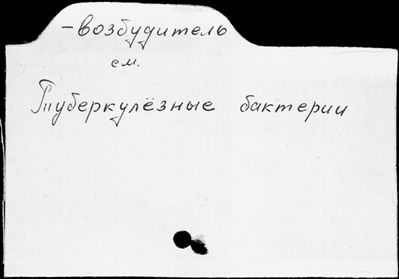 -возбудитель
см.
Туберкулёзные бактерии